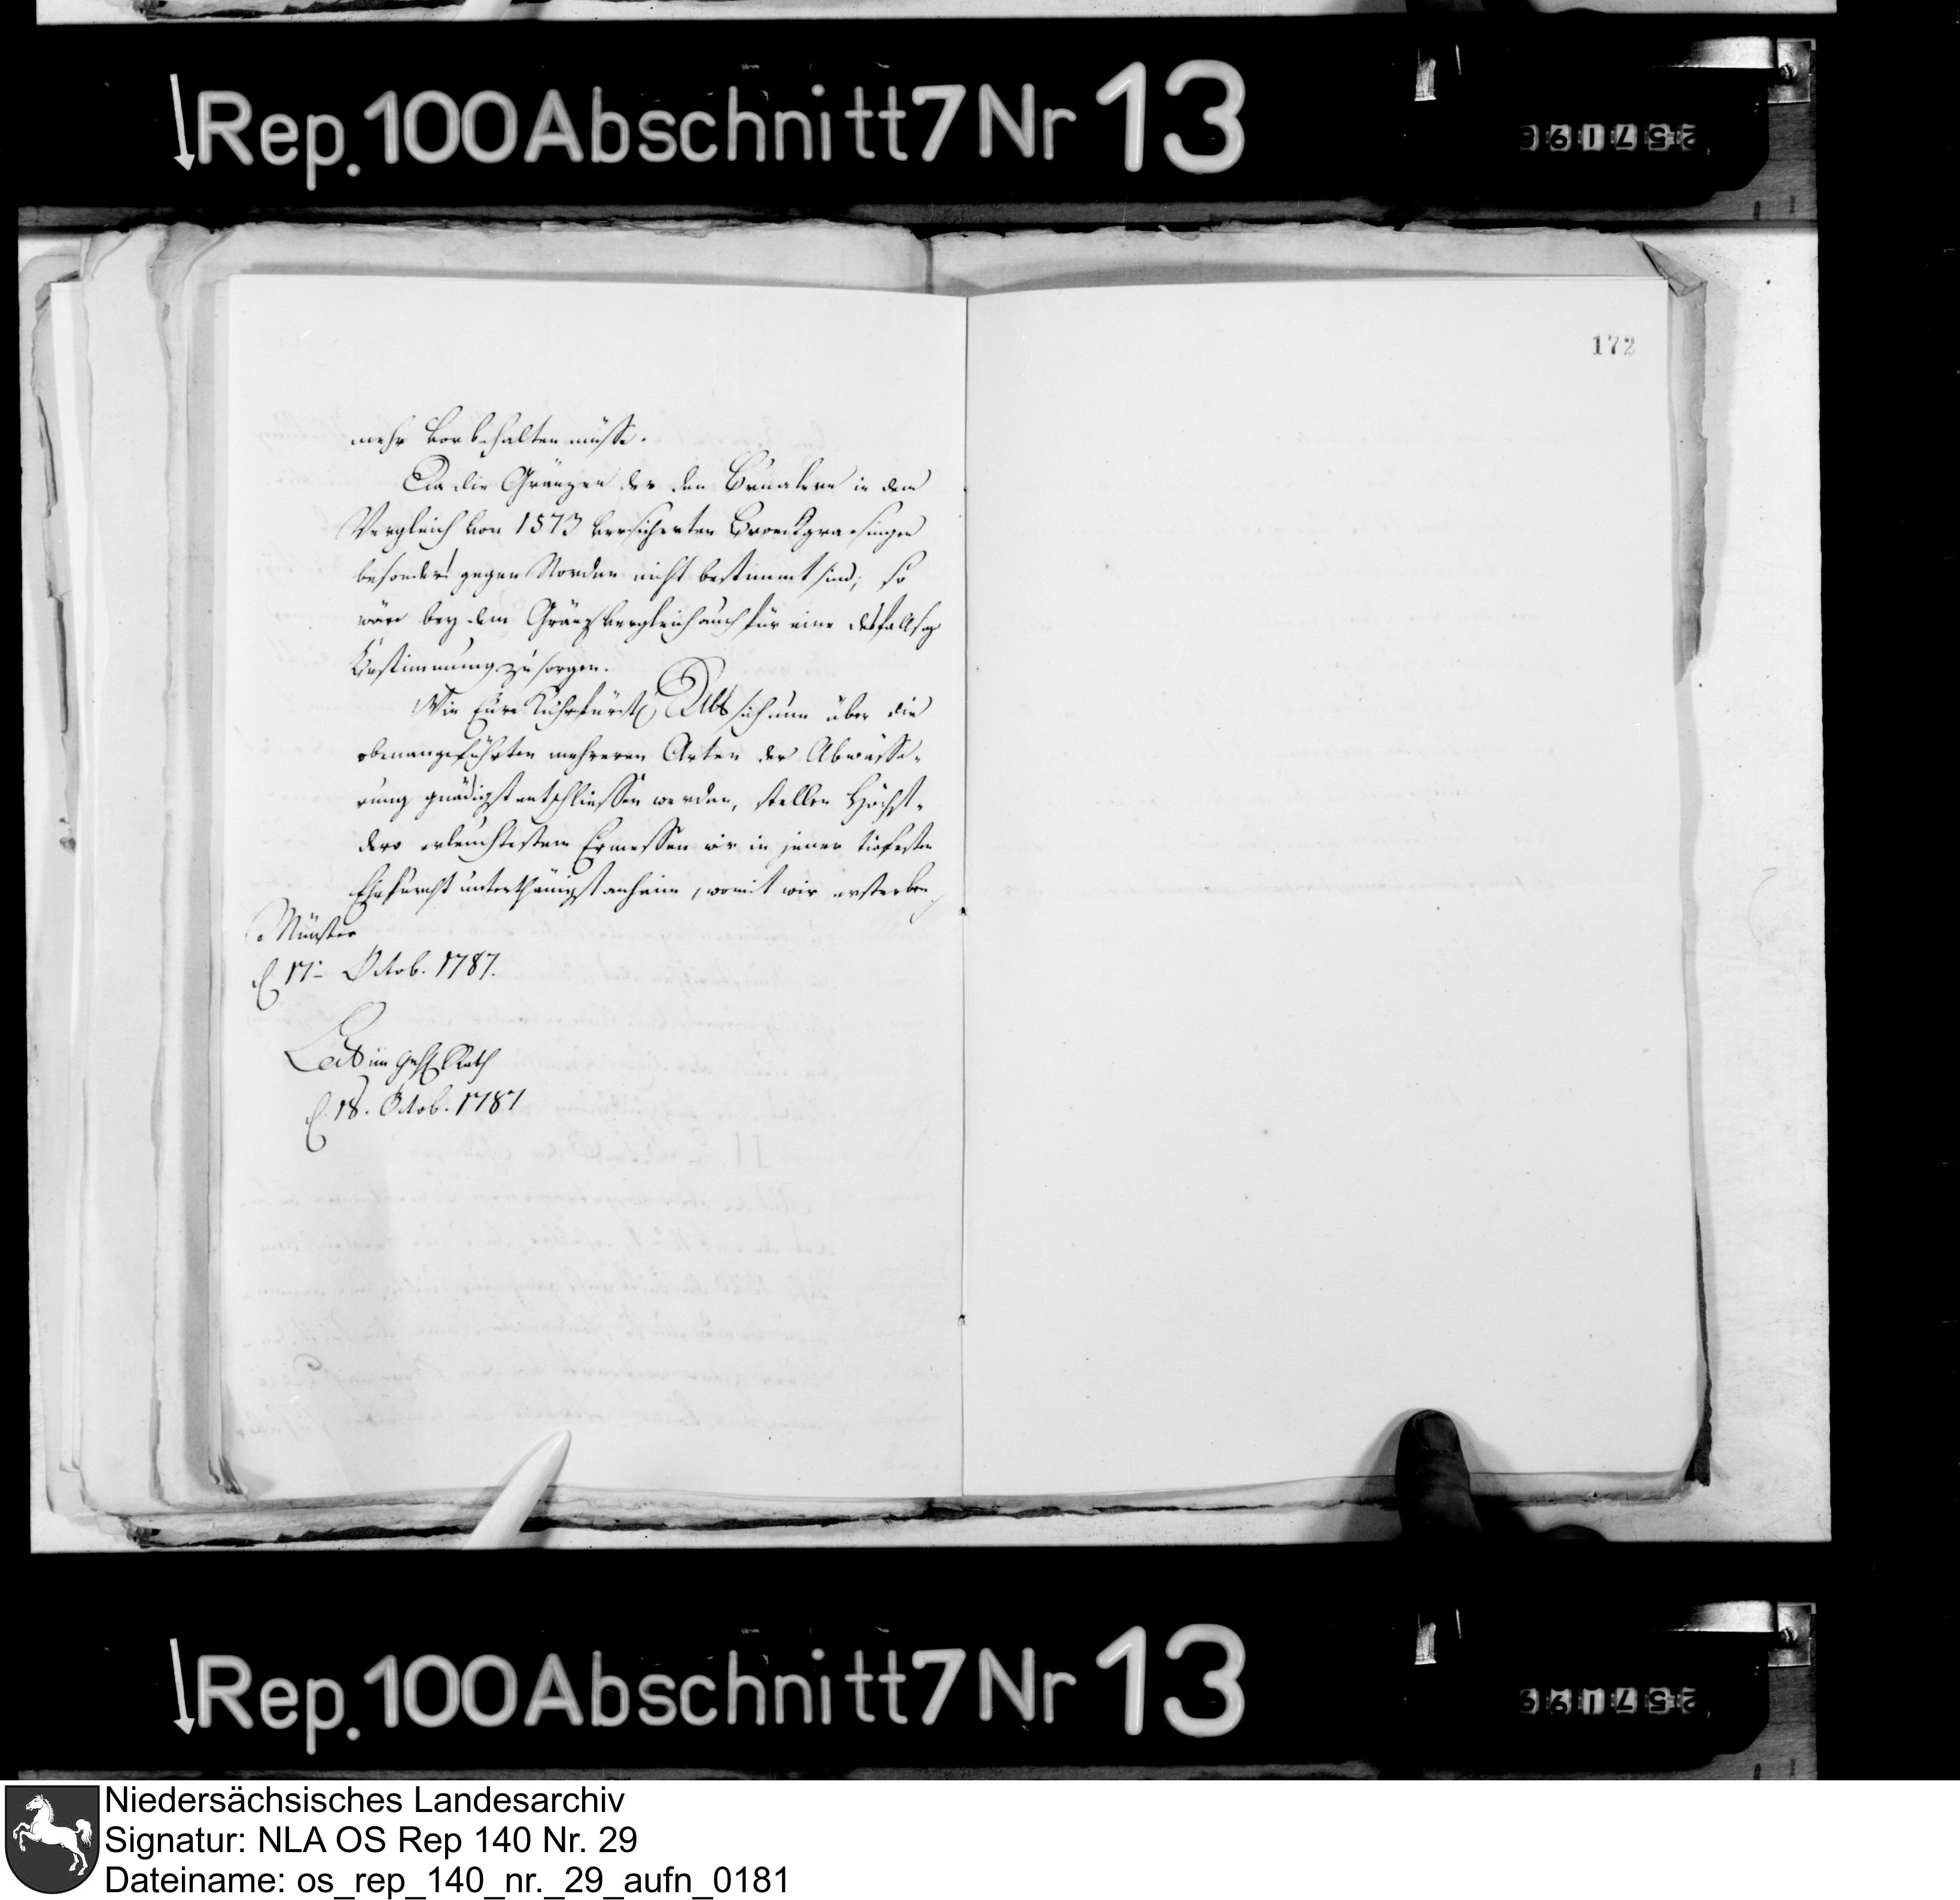 Rep. 100 Abschnitt 7 Nr 13
172
mehr vorbehalten müsse.
Da die Gränzen der den in dem
Vergleich von 1573 versicherten
besonders gegen Norden nicht bestimmt sind; so
wäre bey dem Gränzvergleich auch für eine desfallsige
Bestimmung zu sorgen.
Wie Eure Kuhrfürstl sich nun über die
obenangeführten mehreren Arten der Abwässe-
rung gnädigst entschliessen werden, stellen Höchst-
dero erleuchtestem Ermessen wir in jener tiefesten
Ehrfurcht unterthänigst anheim, womit wir ersterben
Münster
d 17t Octob. 1787.
Lect im geh Rath
d. 18. Octob. 1787
Rep. 100 Abschnitt 7 Nr 13
Niedersächsisches Landesarchiv
Signatur: NLA OS Rep 140 Nr. 29
Dateiname: os_rep_140_nr._29_aufn_0181